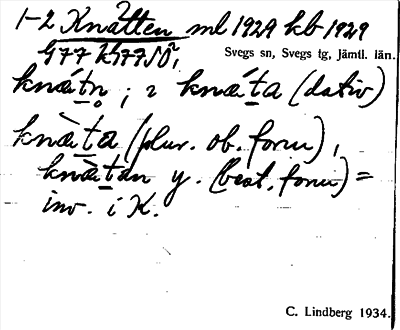 1-2 Knåtten ml 1929 kb 1929
G77 Kh77SÖ,
Svegs sn, Svegs tg, Jämtl. län.
knǽtn̥ ; 2 knǽta (dativ)
knæ̀ta (plur. ob. form),
knæ̀tan y. (best. form) =
inv. i K.
C. Lindberg 1934.